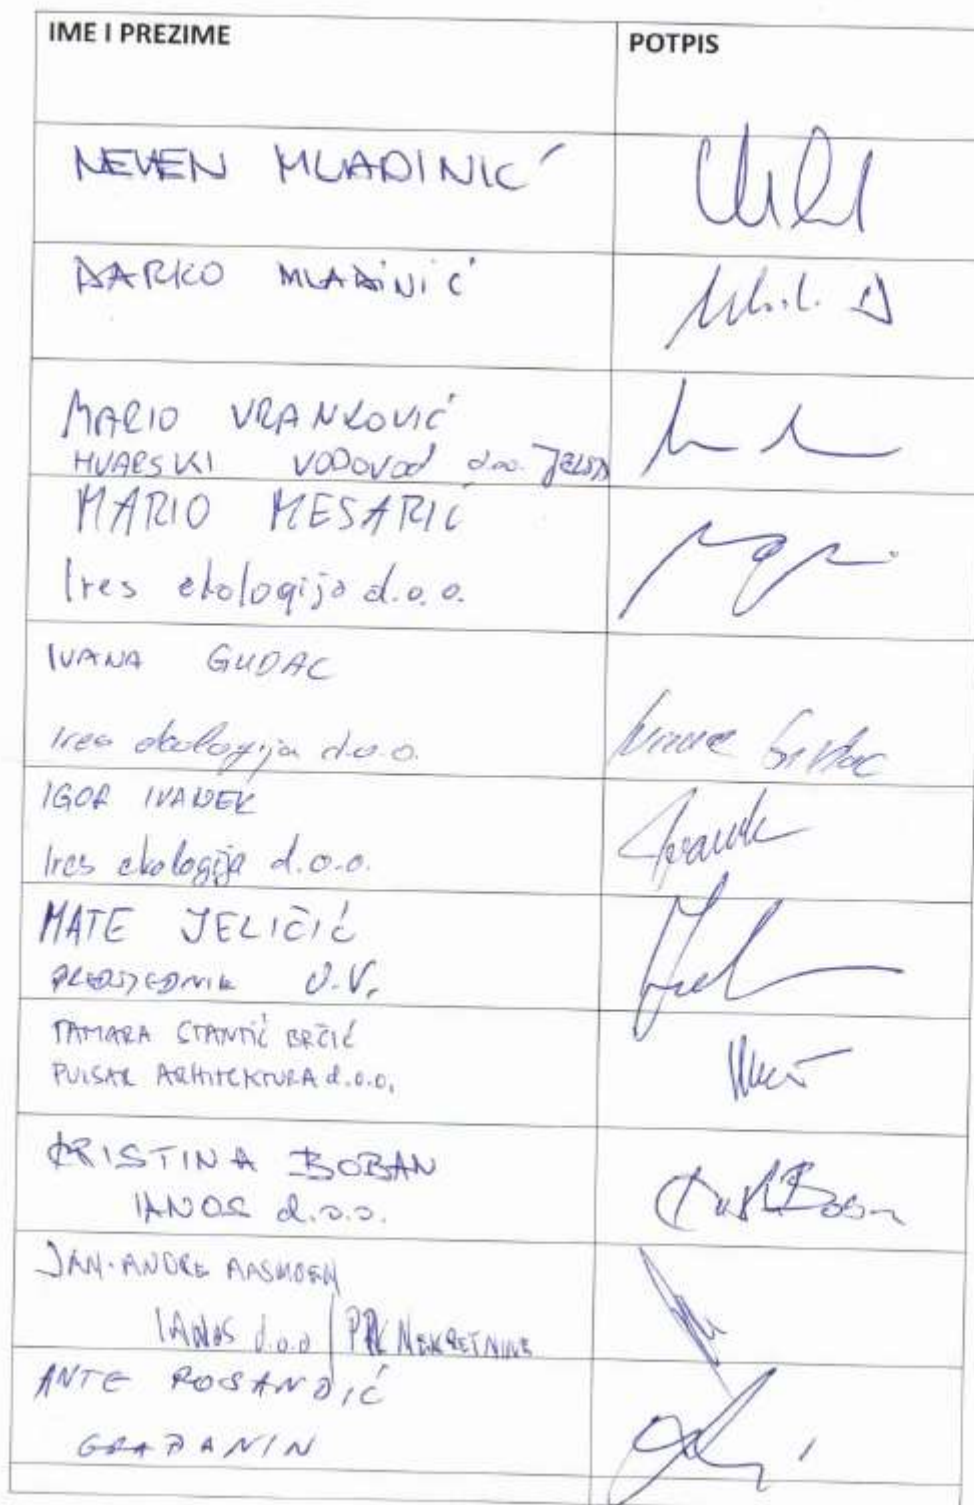 IME I PREZIME
POTPIS
NEVEN MLADINIĆ
DARKO MLADINIĆ
MARIO VRANKOVIĆ
HVARSKI VODOVOD d.o.o. JELSA
MARIO MESARIĆ
Ires ekologija d.o.o.
IVANA GUDAC
Ires ekologija d.o.o.
Ivana Gudac
IGOR IVANEK
Ires ekologija d.o.o.
Ivanek
MATE JELIČIĆ
PREDSJEDNIK O.V.
TAMARA STANTIĆ BRČIĆ
PULSAR ARHITEKTURA d.o.o.
KRISTINA BOBAN
IANOS d.o.o.
JAN-ANDRE
IANOS d.o.o / NEKRETNINE
ANTE ROSANDIĆ
GRAĐANIN